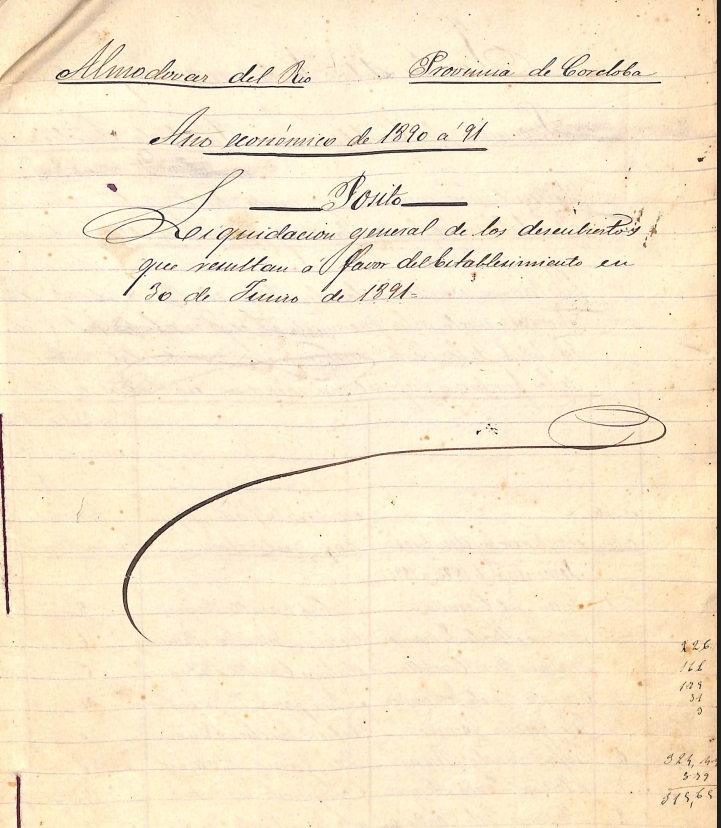 Almodovar del Rio Provincia de Cordoba
Año económico de 1890 á 91
Posito
Liquidacion general de los descubiertos
que resultan á favor del Establecimiento en
30 de Junio de 1891=
226
31
3